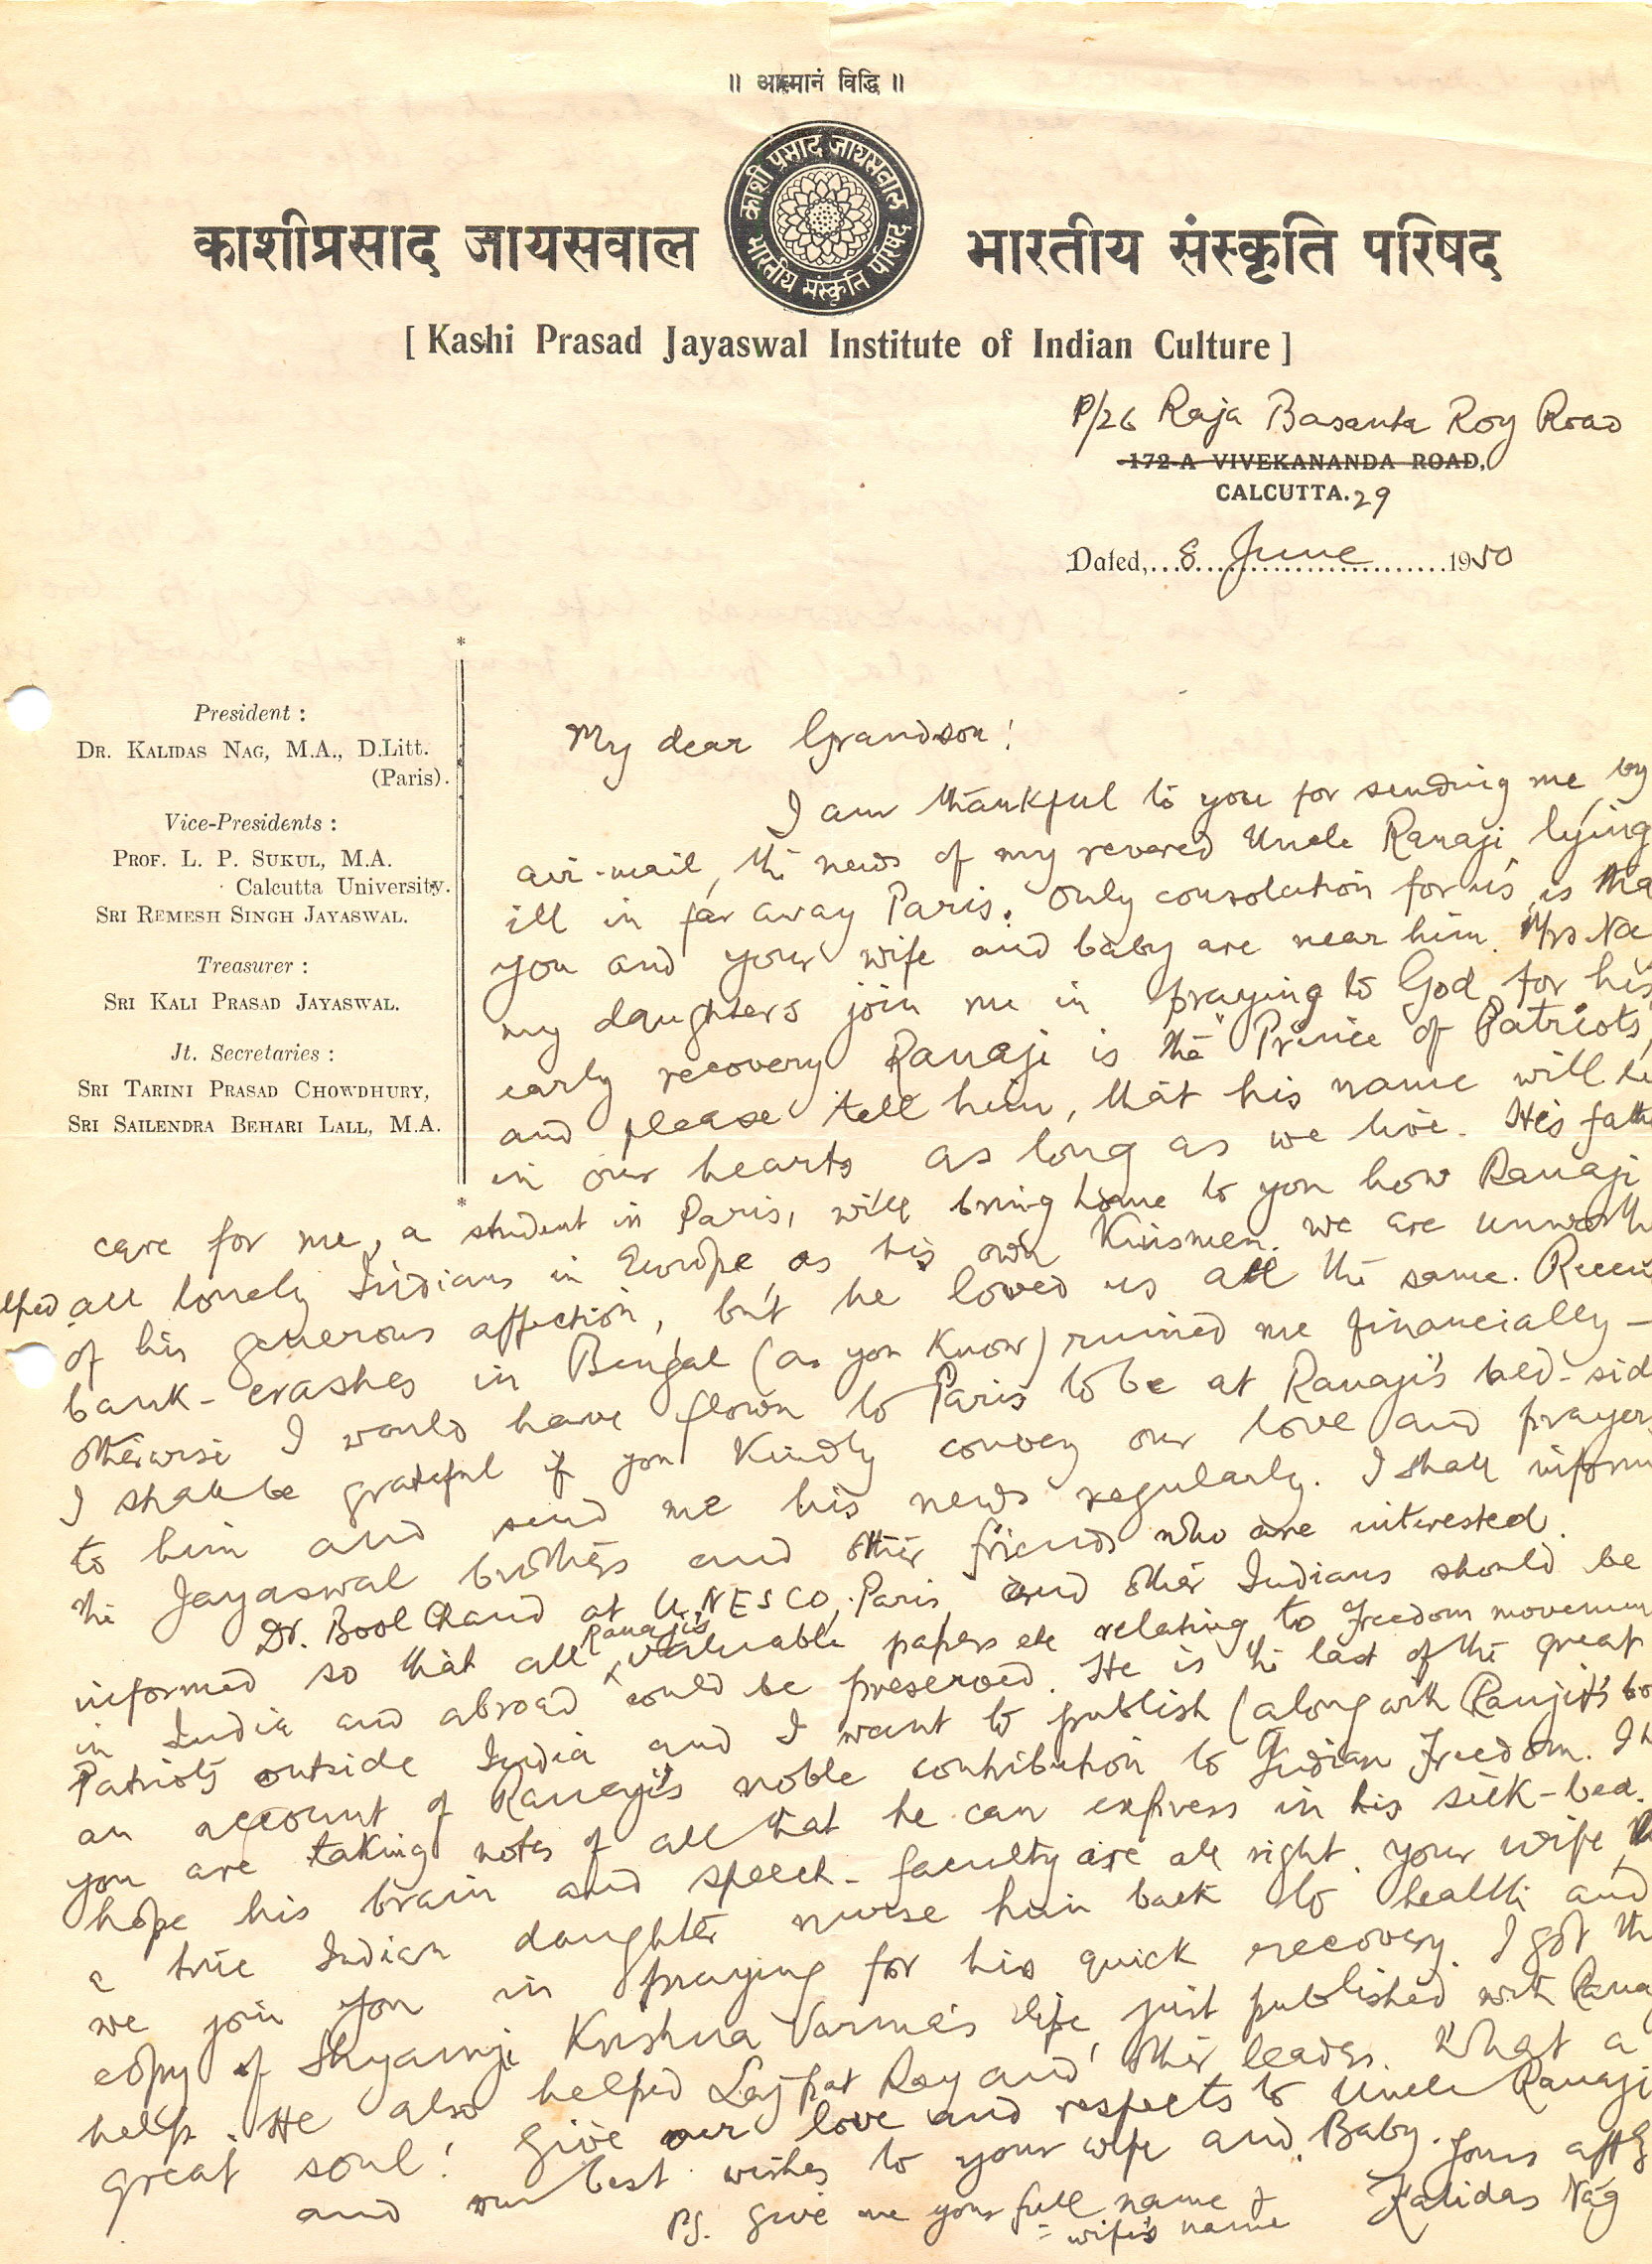 ॥ आत्मानं विद्धि ॥
काशीप्रसाद जायसवाल भारतीय संस्कृति परिषद
काशी प्रसाद जायसवाल
भारतीय संस्कृति परिषद
[ Kashi Prasad Jayaswal Institute of Indian Culture ]
P/26 Raja Basanta Roy Road
172-A VIVEKANANDA ROAD,
CALCUTTA.29
Dated, 8 June 1950
President :
DR. KALIDAS NAG, M.A., D.Litt.
(Paris).
Vice-Presidents :
PROF. L. P. SUKUL, M.A.
Calcutta University.
SRI REMESH SINGH JAYASWAL.
Treasurer :
SRI KALI PRASAD JAYASWAL.
Jt. Secretaries :
SRI TARINI PRASAD CHOWDHURY,
SRI SAILENDRA BEHARI LALL, M.A.
My dear Grandson!
I am thankful to you for sending me, by
air-mail, the news of my revered Uncle Ranaji lying
ill in far away Paris. Only consolation for us is tha
you and your wife and baby are near him. Mrs Na
my daughters join me in praying to God for his
early recovery Ranaji is the "Prince of Patriots"
and please tell him, that his name will li
in our hearts as long as we live. His fath
care for me, a student in Paris, will bring home to you how Ranaji
lped all lonely Indians in Europe as his own Kinsmen. we are unworth
of his generous affection, but he loved us all the same. Recen
bank-crashes in Bengal (as you know) ruined me financially –
otherwise I would have flown to Paris to be at Ranaji's bed-sid
I shall be grateful if you kindly convey our love and prayer
to him and send me his news regularly. I shall inform
the Jayaswal brothers and other friends who are interested.
Dr. Bool Chand at U.NESCO, Paris and other Indians should be
informed so that all Ranaji's valuable papers etc relating to Freedom movemen
in India and abroad could be preserved. He is the last of the great
Patriots outside India and I want to publish (along with Ranjit's bo
an account of Ranaji's noble contribution to Indian Freedom. I h
you are taking notes of all that he can express in his sick-bed.
hope his brain and speech-faculty are all right. your wife
a true Indian daughter nurse him back to health and
we join you in praying for his quick recovery. I got th
copy of Shyamji Krishna Varma's life, just published with Rana
help. He also helped Lajpat Roy and other leaders. What a
great soul! Give our love and respects to Uncle Ranaji
and our best wishes to your wife and Baby. Yours affly
Kalidas Nag
PS. Give me your full name &
= wife's name